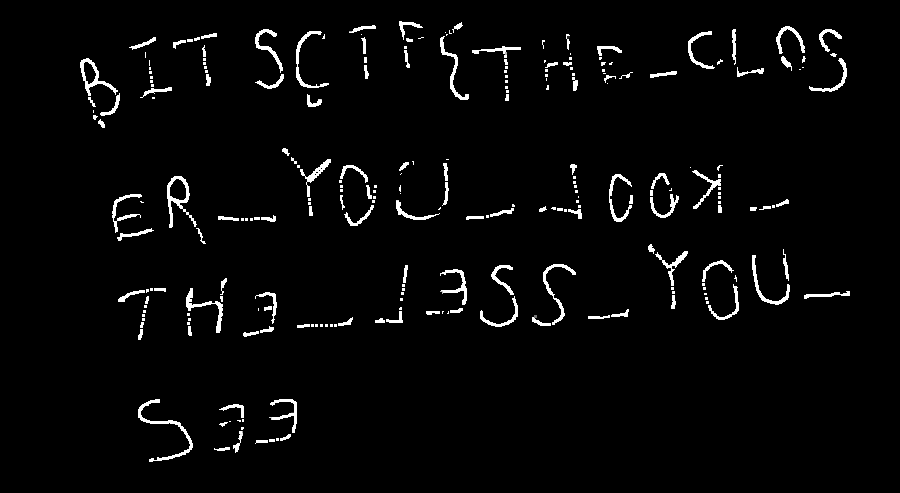 BITSCTF{THE_CLOS
ER_YOU_LOOK_
THE_LESS_YOU_
SEE